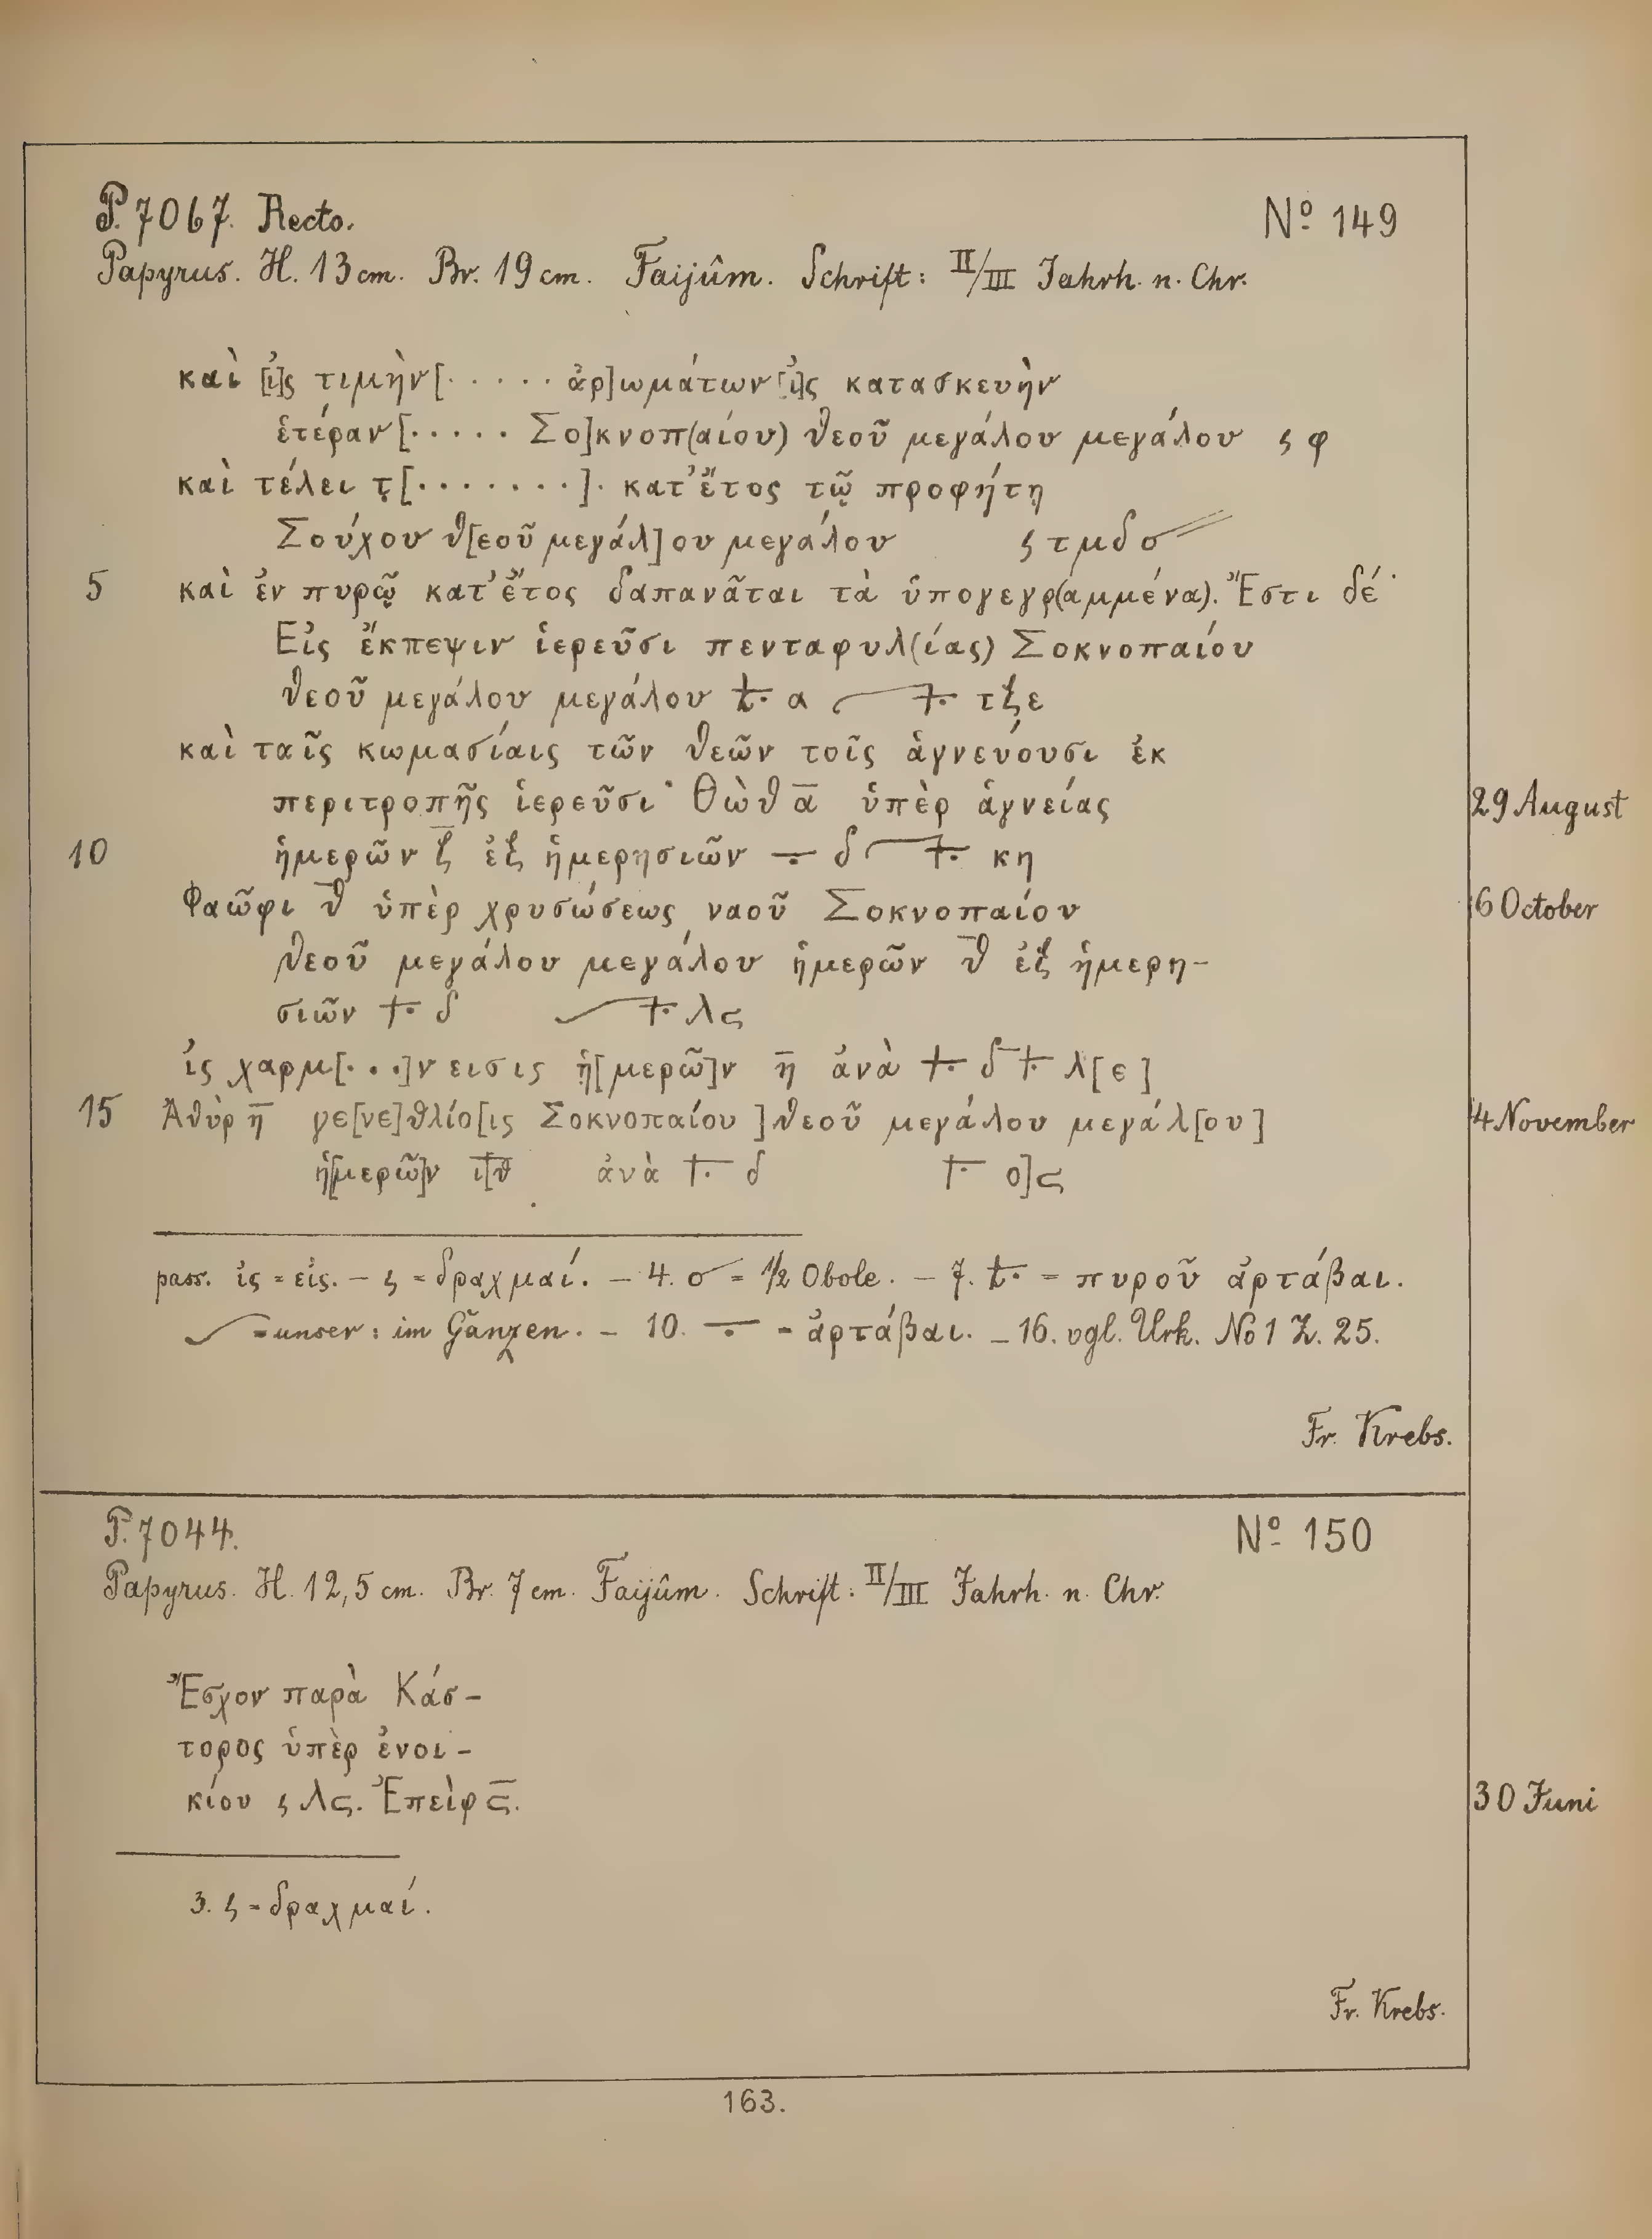 P. 7067. Recto. Nº 149
Papyrus. H. 13 cm. Br. 19 cm. Faijûm. Schrift: II/III Jahrh. n. Chr.
καὶ [ἰ]ς τιμὴν [· · · · · ἀρ]ωμάτων [ἰ]ς κατασκευὴν
ἑτέραν [· · · · · Σο]κνοπ(αίου) θεοῦ μεγάλου μεγάλου ϛ φ
καὶ τέλει τ̣[· · · · · · ·]· κατ' ἔτος τῷ προφήτῃ
Σούχου θ[εοῦ μεγάλ]ου μεγάλου ϛ τμδ σ
5 καὶ ἐν πυρῷ κατ' ἔτος δαπανᾶται τὰ ὑπογεγρ(αμμένα). Ἔστι δέ·
Εἰς ἔκπεψιν ἱερεῦσι πενταφυλ(ίας) Σοκνοπαίου
θεοῦ μεγάλου μεγάλου 𐆂· α 𐆂· τξε
καὶ ταῖς κωμασίαις τῶν θεῶν τοῖς ἁγνεύουσι ἐκ
περιτροπῆς ἱερεῦσι· Θὼθ α̅ ὑπὲρ ἁγνείας 29 August
10 ἡμερῶν ζ̅ ἐξ ἡμερησιῶν ⨪ δ 𐆂· κη
Φαῶφι θ̅ ὑπὲρ χρυσώσεως ναοῦ Σοκνοπαίου 6 October
θεοῦ μεγάλου μεγάλου ἡμερῶν θ̅ ἐξ ἡμερη-
σιῶν 𐆂· δ 𐆂· λϛ
ἰς χαρμ[· · ·]ν εισις ἡ[μερῶ]ν η̅ ἀνὰ 𐆂· δ 𐆂· λ[ε]
15 Ἁθὺρ η̅ γε[νε]θλίο[ις Σοκνοπαίου] θεοῦ μεγάλου μεγάλ[ου] 4 November
ἡ[μερῶ]ν ι[θ̅ ἀνὰ 𐆂· δ 𐆂· ο]ϛ
pass. ἰς = εἰς. – ϛ = δραχμαί. – 4. σ = 1/2 Obole. – 7. 𐆂· = πυροῦ ἀρτάβαι.
= unser: im Gänzen. – 10. ⨪ = ἀρτάβαι. – 16. vgl. Urk. No 1 Z. 25.
Fr. Krebs.
P. 7044. Nº 150
Papyrus. H. 12,5 cm. Br. 7 cm. Faijûm. Schrift: II/III Jahrh. n. Chr.
Ἔσχον παρὰ Κάσ-
τορος ὑπὲρ ἐνοι-
κίου ϛ λϛ. Ἐπεὶφ ϛ̅. 30 Juni
3. ϛ = δραχμαί.
Fr. Krebs.
163.